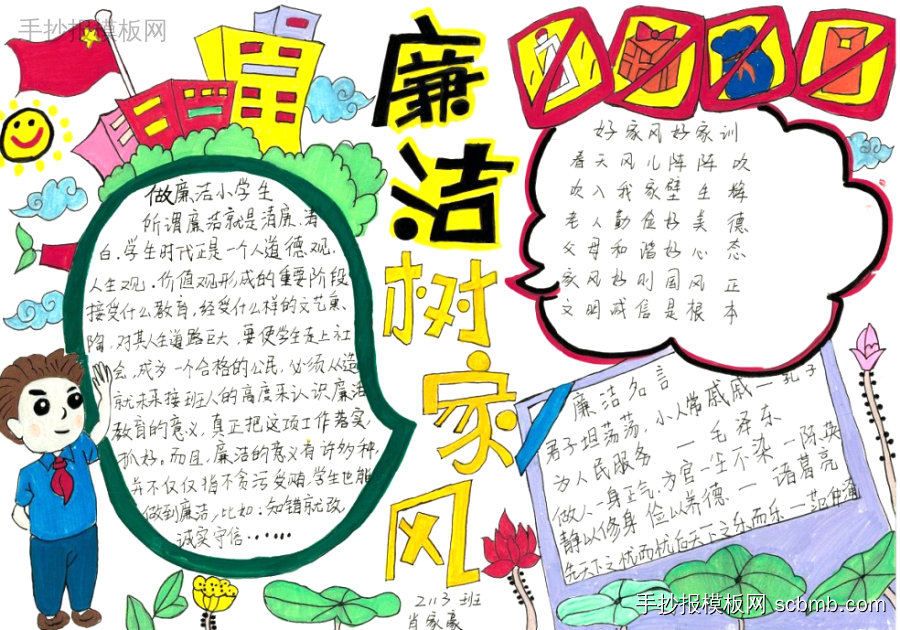 手抄报模板网
廉洁树家风
做廉洁小学生
所谓廉洁就是清廉、清
白。学生时代正是一个人道德观、
人生观、价值观形成的重要阶段
接受什么教育，经受什么样的文艺熏
陶，对其人生道路巨大，要使学生走上社
会，成为一个合格的公民，必须从造
就未来接班人的高度来认识廉洁
教育的意义，真正把这项工作落实，
抓好。而且，廉洁的意义有许多种，
并不仅仅指不贪污受贿，学生也能
做到廉洁，比如：知错就改
诚实守信……
好家风好家训
春天风儿阵阵吹
吹入我家壁生梅
老人勤俭好美德
父母和谐好心态
家风好则国风正
文明诚信是根本
廉洁名言
君子坦荡荡，小人常戚戚—孔子
为人民服务 — 毛泽东
做人一身正气，为官一尘不染—陈英
静以修身 俭以养德 — 诸葛亮
先天下之忧而忧后天下之乐而乐—范仲淹
2113班
肖家豪
手抄报模板网 scbmb.com